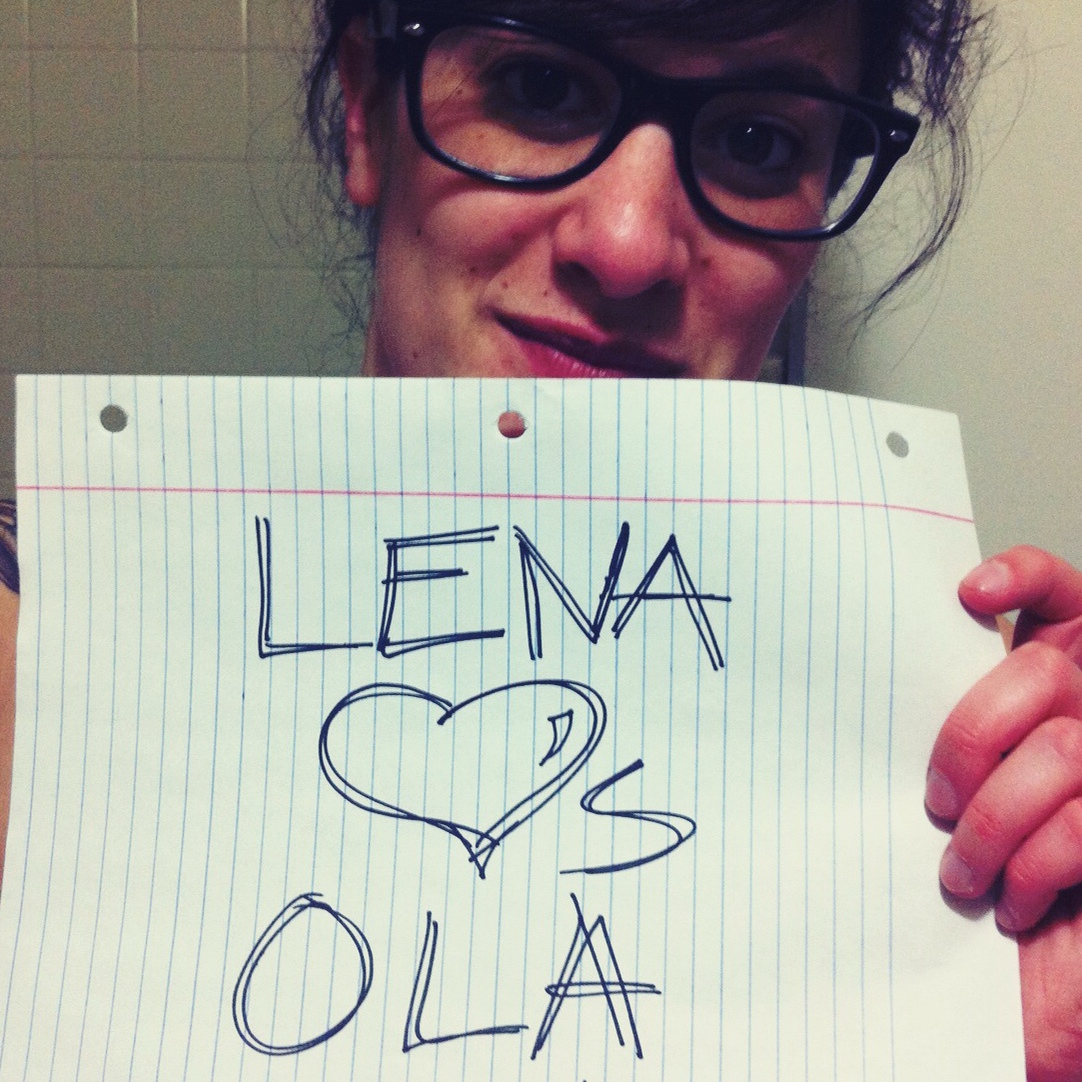 LENA
♡S
OLA